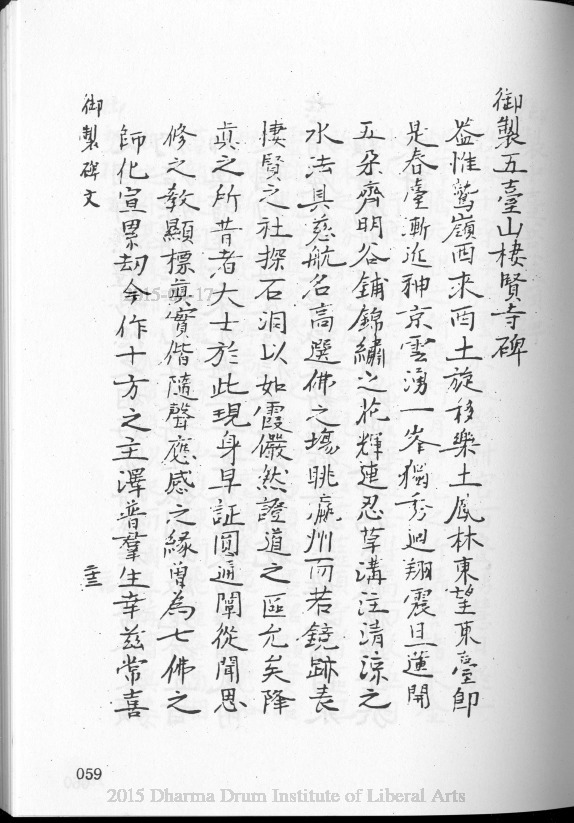 御製五臺山棲賢寺碑
葢惟鷲嶺西來西土旋移樂土鳳林東望東臺卽
是春臺漸近神京雲湧一峯獨秀迴翔震旦蓮開
五朵齊明谷鋪錦繡之花輝連忍草溝注清涼之
水法具慈航名高選佛之場眺瀛州而若鏡跡表
棲賢之社探石洞以如霞儼然證道之區允矣降
眞之所昔者大士於此現身早証圓通闡從聞思
修之教顯標眞實偕隨聲應感之緣曾為七佛之
師化宣累劫今作十方之主澤普羣生幸茲常喜
御製碑文
二十三
059
2015 Dharma Drum Institute of Liberal Arts